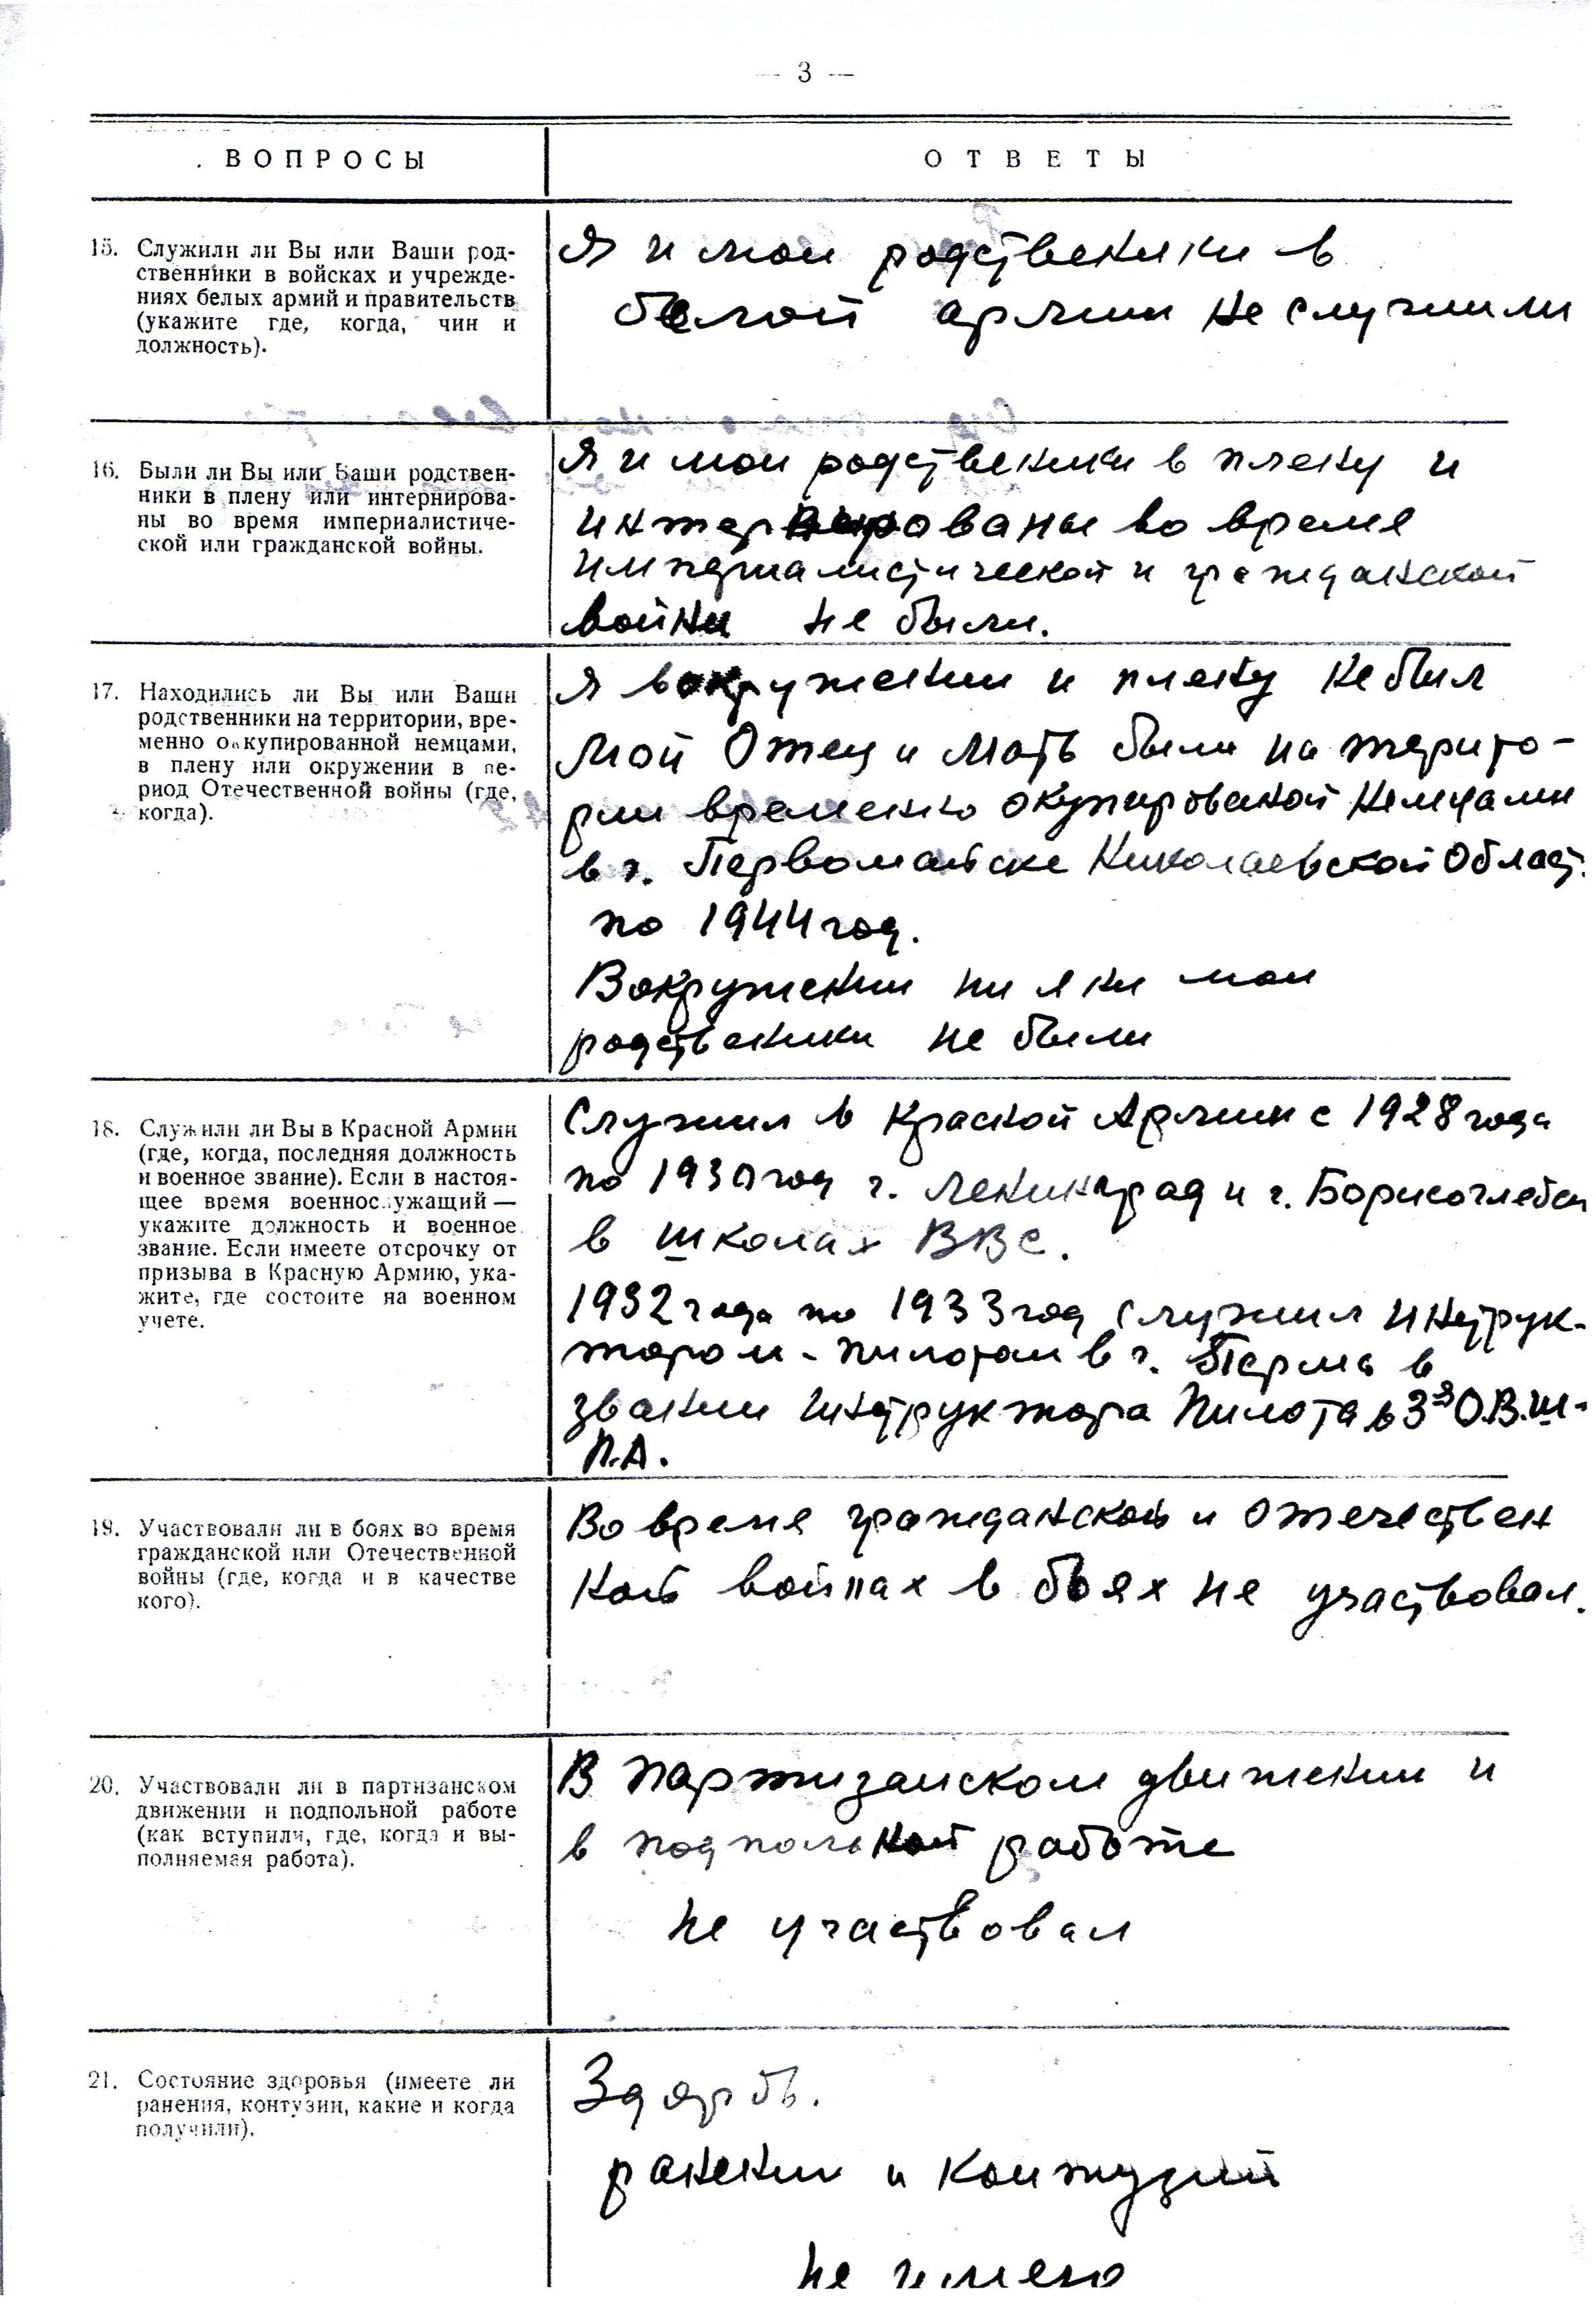 — 3 —
ВОПРОСЫ
ОТВЕТЫ
15. Служили ли Вы или Ваши род-
ственники в войсках и учрежде-
ниях белых армий и правительств
(укажите где, когда, чин и
должность).
Я и мои родственики в
белой армии не служили
16. Были ли Вы или Ваши родствен-
ники в плену или интернирова-
ны во время империалистиче-
ской или гражданской войны.
Я и мои родственики в плену и
интернированы во время
империалистической и гражданской
войны не были.
17. Находились ли Вы или Ваши
родственники на территории, вре-
менно оккупированной немцами,
в плену или окружении в пе-
риод Отечественной войны (где,
когда).
Я вокружении и плену не был
Мой Отец и Мать были на терито-
рии временно окупированой Немцами
в г. Первомайске Николаевской Област.
по 1944 год.
Вокружении ни я ни мои
родственики не были
18. Служили ли Вы в Красной Армии
(где, когда, последняя должность
и военное звание). Если в настоя-
щее время военнослужащий —
укажите должность и военное
звание. Если имеете отсрочку от
призыва в Красную Армию, ука-
жите, где состоите на военном
учете.
Служил в Красной Армии с 1928 года
по 1930 год г. Ленинград и г. Борисоглебск
в школах ВВС.
1932 года по 1933 год служил инструк-
тором-пилотом в г. Перма в
звании инструктора Пилота в 3ей О.В.Ш.
П.А.
19. Участвовали ли в боях во время
гражданской или Отечественной
войны (где, когда и в качестве
кого).
Во время гражданской и Отечествен
ной войнах в боях не участвовал.
20. Участвовали ли в партизанском
движении и подпольной работе
(как вступили, где, когда и вы-
полняемая работа).
В партизанском движении и
в подпольной работе
не участвовал
21. Состояние здоровья (имеете ли
ранения, контузии, какие и когда
получили).
ранении и контузий
не имею